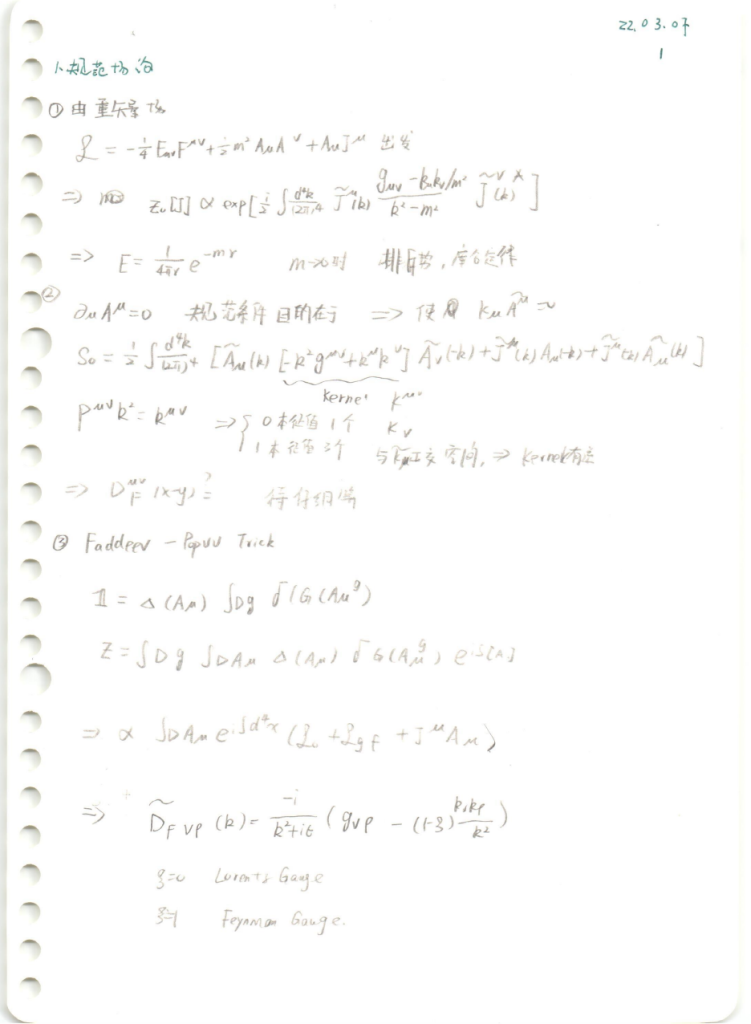 22.03.07
1
1.规范场论
① 由重矢量场
L = -1/4 F_{μν}F^{μν} + 1/2 m² A_μ A^ν + A_μ J^μ 出发
⇒ Z_0[J] ∝ exp[i/2 ∫ d⁴k/(2π)⁴ J̃^μ(k) (g_{μν} - k_μk_ν/m²)/(k² - m²) J̃^ν(k)^*]
⇒ E = 1/(4πr) e^{-mr} m→0时 排斥势,库仑定律
② ∂_μ A^μ = 0 规范条件目的在于 ⇒ 使 k_μ Ã^μ = 0
S_0 = 1/2 ∫ d⁴k/(2π)⁴ [Ã_μ(k) [-k²g^{μν} + k^μk^ν] Ã_ν(-k) + J̃^μ(k) A_μ(-k) + J̃^μ(-k) Ã_μ(k)]
kernel k^{μν}
P^{μν} k² = k^{μν} ⇒ { 0本征值1个 k_ν
1本征值3个 与k_μ正交空间, ⇒ kernel有
⇒ D_F^{μν}(x-y) ?=
③ Faddeev - Popov Trick
𝟙 = Δ(A_μ) ∫Dg δ(G(A_μ^g)
Z = ∫Dg ∫DA_μ Δ(A_μ) δG(A_μ^g) e^{iS[A]}
⇒ ∝ ∫DA_μ e^{i∫d⁴x} (L_0 + L_{gf} + J^μ A_μ)
⇒ D̃_{Fνρ}(k) = -i/(k²+iε) (g_{νρ} - (1-ξ) k_νk_ρ/k²)
ξ=0 Lorents Gauge
ξ=1 Feynman Gauge.